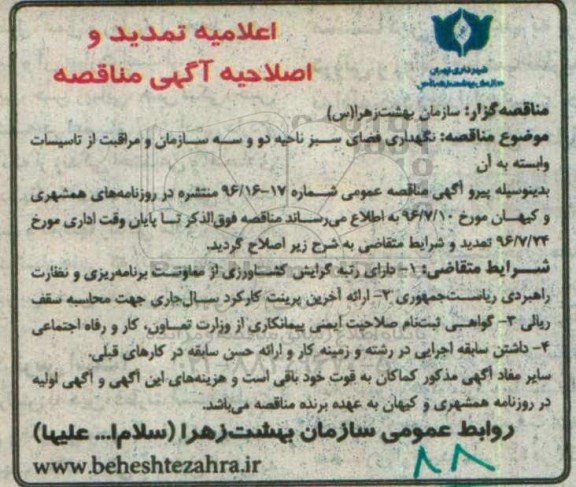 اعلامیه تمدید و
اصلاحیه آگهی مناقصه
شهرداری تهران
سازمان بهشت زهرا(س)
مناقصه‌گزار: سازمان بهشت‌زهرا(س)
موضوع مناقصه: نگهداری فضای سبز ناحیه دو و سه سازمان و مراقبت از تاسیسات
وابسته به آن
بدینوسیله پیرو آگهی مناقصه عمومی شماره ۱۷-۹۶/۱۶ منتشره در روزنامه‌های همشهری
و کیهان مورخ ۹۶/۷/۱۰ به اطلاع می‌رساند مناقصه فوق‌الذکر تا پایان وقت اداری مورخ
۹۶/۷/۲۴ تمدید و شرایط متقاضی به شرح زیر اصلاح گردید.
شرایط متقاضی: ۱- دارای رتبه گرایش کشاورزی از معاونت برنامه‌ریزی و نظارت
راهبردی ریاست‌جمهوری ۲- ارائه آخرین پرینت کارکرد سال‌جاری جهت محاسبه سقف
ریالی ۳- گواهی ثبت‌نام صلاحیت ایمنی پیمانکاری از وزارت تعاون، کار و رفاه اجتماعی
۴- داشتن سابقه اجرایی در رشته و زمینه کار و ارائه حسن سابقه در کارهای قبلی.
سایر مفاد آگهی مذکور کماکان به قوت خود باقی است و هزینه‌های این آگهی و آگهی اولیه
در روزنامه همشهری و کیهان به عهده برنده مناقصه می‌باشد.
روابط عمومی سازمان بهشت‌زهرا (سلام‌ا... علیها)
www.beheshtezahra.ir
۸۸